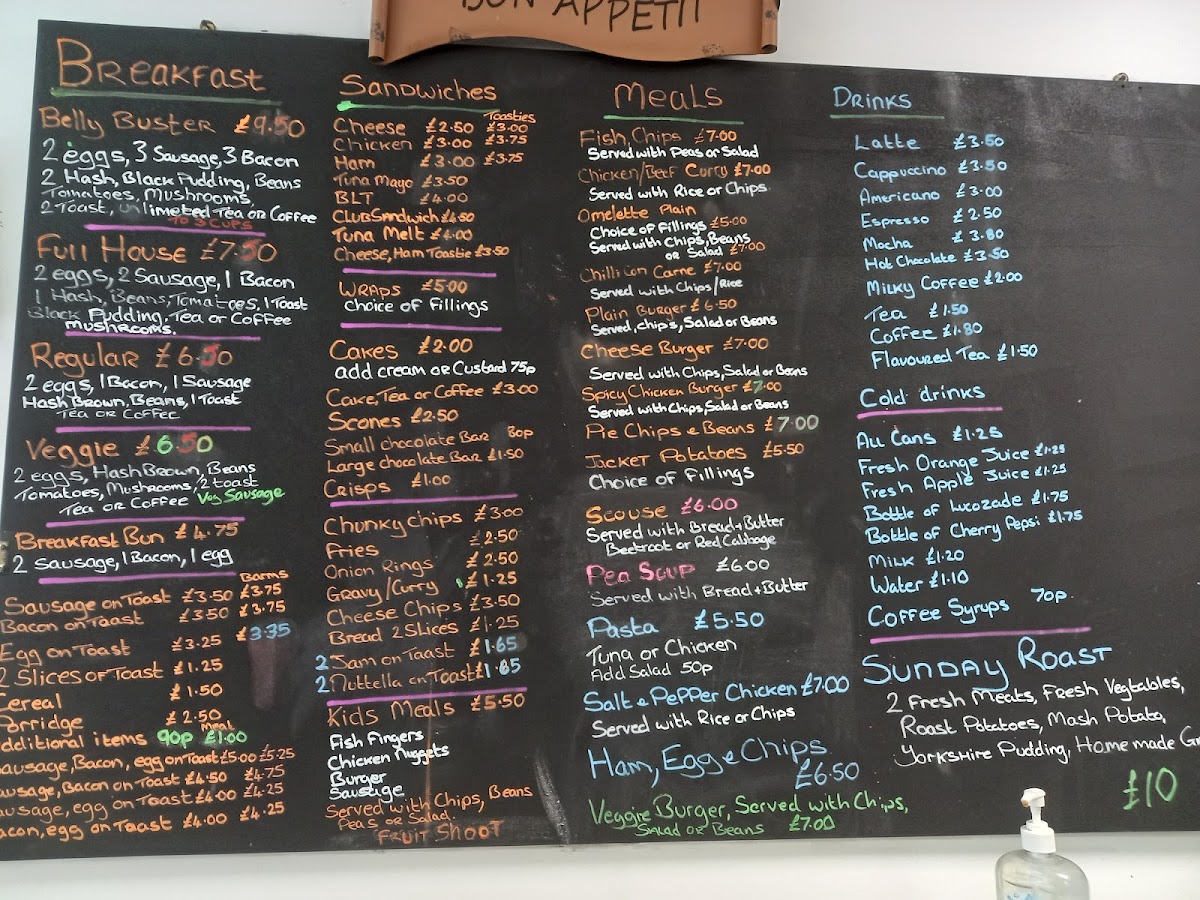 BON APPETIT
BREAKFAST
Belly Buster £9.50
2 eggs, 3 Sausage, 3 Bacon
2 Hash, Black Pudding, Beans
Tomatoes, Mushrooms,
2 Toast, unlimeted Tea or Coffee
To 3 Cups
Full House £7.50
2 eggs, 2 Sausage, 1 Bacon
1 Hash, Beans, Tomatoes, 1 Toast
Black Pudding, Tea or Coffee
mushrooms.
Regular £6.50
2 eggs, 1 Bacon, 1 Sausage
Hash Brown, Beans, 1 Toast
Tea or Coffee
Veggie £6.50
2 eggs, Hash Brown, Beans
Tomatoes, Mushrooms, 2 toast
Tea or Coffee Veg Sausage
Breakfast Bun £4.75
2 Sausage, 1 Bacon, 1 egg
Barms
Sausage on Toast £3.50 £3.75
Bacon on Toast £3.50 £3.75
Egg on Toast £3.25 £3.35
2 Slices of Toast £1.25
Cereal £1.50
Porridge £2.50
Meat
additional items 90p £1.00
Sausage, Bacon, egg on Toast £5.00 £5.25
Sausage, Bacon on Toast £4.50 £4.75
Sausage, egg on Toast £4.00 £4.25
Bacon, egg on Toast £4.00 £4.25
Sandwiches
Toasties
Cheese £2.50 £3.00
Chicken £3.00 £3.75
Ham £3.00 £3.75
Tuna Mayo £3.50
BLT £4.00
Club Sandwich £4.50
Tuna Melt £4.00
Cheese, Ham Toastie £3.50
Wraps £5.00
Choice of Fillings
Cakes £2.00
add cream or Custard 75p
Cake, Tea or Coffee £3.00
Scones £2.50
Small chocolate Bar 80p
Large chocolate Bar £1.50
Crisps £1.00
Chunky chips £3.00
Fries £2.50
Onion Rings £2.50
Gravy/Curry £1.25
Cheese Chips £3.50
Bread 2 Slices £1.25
2 Jam on Toast £1.65
2 Nuttella on Toast £1.85
Kids Meals £5.50
Fish Fingers
Chicken Nuggets
Burger
Sausage
Served with Chips, Beans
Peas or Salad.
Fruit Shoot
Meals
Fish, Chips £7.00
Served with Peas or Salad
Chicken/Beef Curry £7.00
Served with Rice or Chips
Omelette Plain
Choice of Fillings £5.00
Served with Chips, Beans
or Salad £7.00
Chilli Con Carne £7.00
Served with Chips/Rice
Plain Burger £6.50
Served, chips, Salad or Beans
Cheese Burger £7.00
Served with Chips, Salad or Beans
Spicy Chicken Burger £7.00
Served with Chips, Salad or Beans
Pie Chips & Beans £7.00
Jacket Potatoes £5.50
Choice of Fillings
Scouse £6.00
Served with Bread + Butter
Beetroot or Red Cabbage
Pea Soup £6.00
Served with Bread + Butter
Pasta £5.50
Tuna or Chicken
Add Salad 50p
Salt & Pepper Chicken £7.00
Served with Rice or Chips
Ham, Egg & Chips
£6.50
Veggie Burger, Served with Chips,
Salad or Beans £7.00
Drinks
Latte £3.50
Cappuccino £3.50
Americano £3.00
Espresso £2.50
Mocha £3.80
Hot Chocolate £3.50
Milky Coffee £2.00
Tea £1.50
Coffee £1.80
Flavoured Tea £1.50
Cold drinks
All Cans £1.25
Fresh Orange Juice £1.25
Fresh Apple Juice £1.25
Bottle of Lucozade £1.75
Bottle of Cherry Pepsi £1.75
Milk £1.20
Water £1.10
Coffee Syrups 70p.
Sunday Roast
2 Fresh Meats, Fresh Vegtables,
Roast Potatoes, Mash Potato,
Yorkshire Pudding, Home made
£10